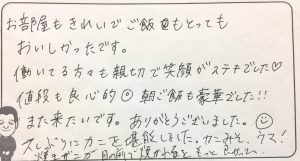 お部屋もきれいでご飯もとっても
おいしかったです。
働いてる方々も親切で笑顔がステキでした♡
値段も良心的☺朝ご飯も豪華でした!!
また来たいです。ありがとうございました。☺
久しぶりにカニを堪能しました。カニみそ、ウマ!
焼きガニが目の前で